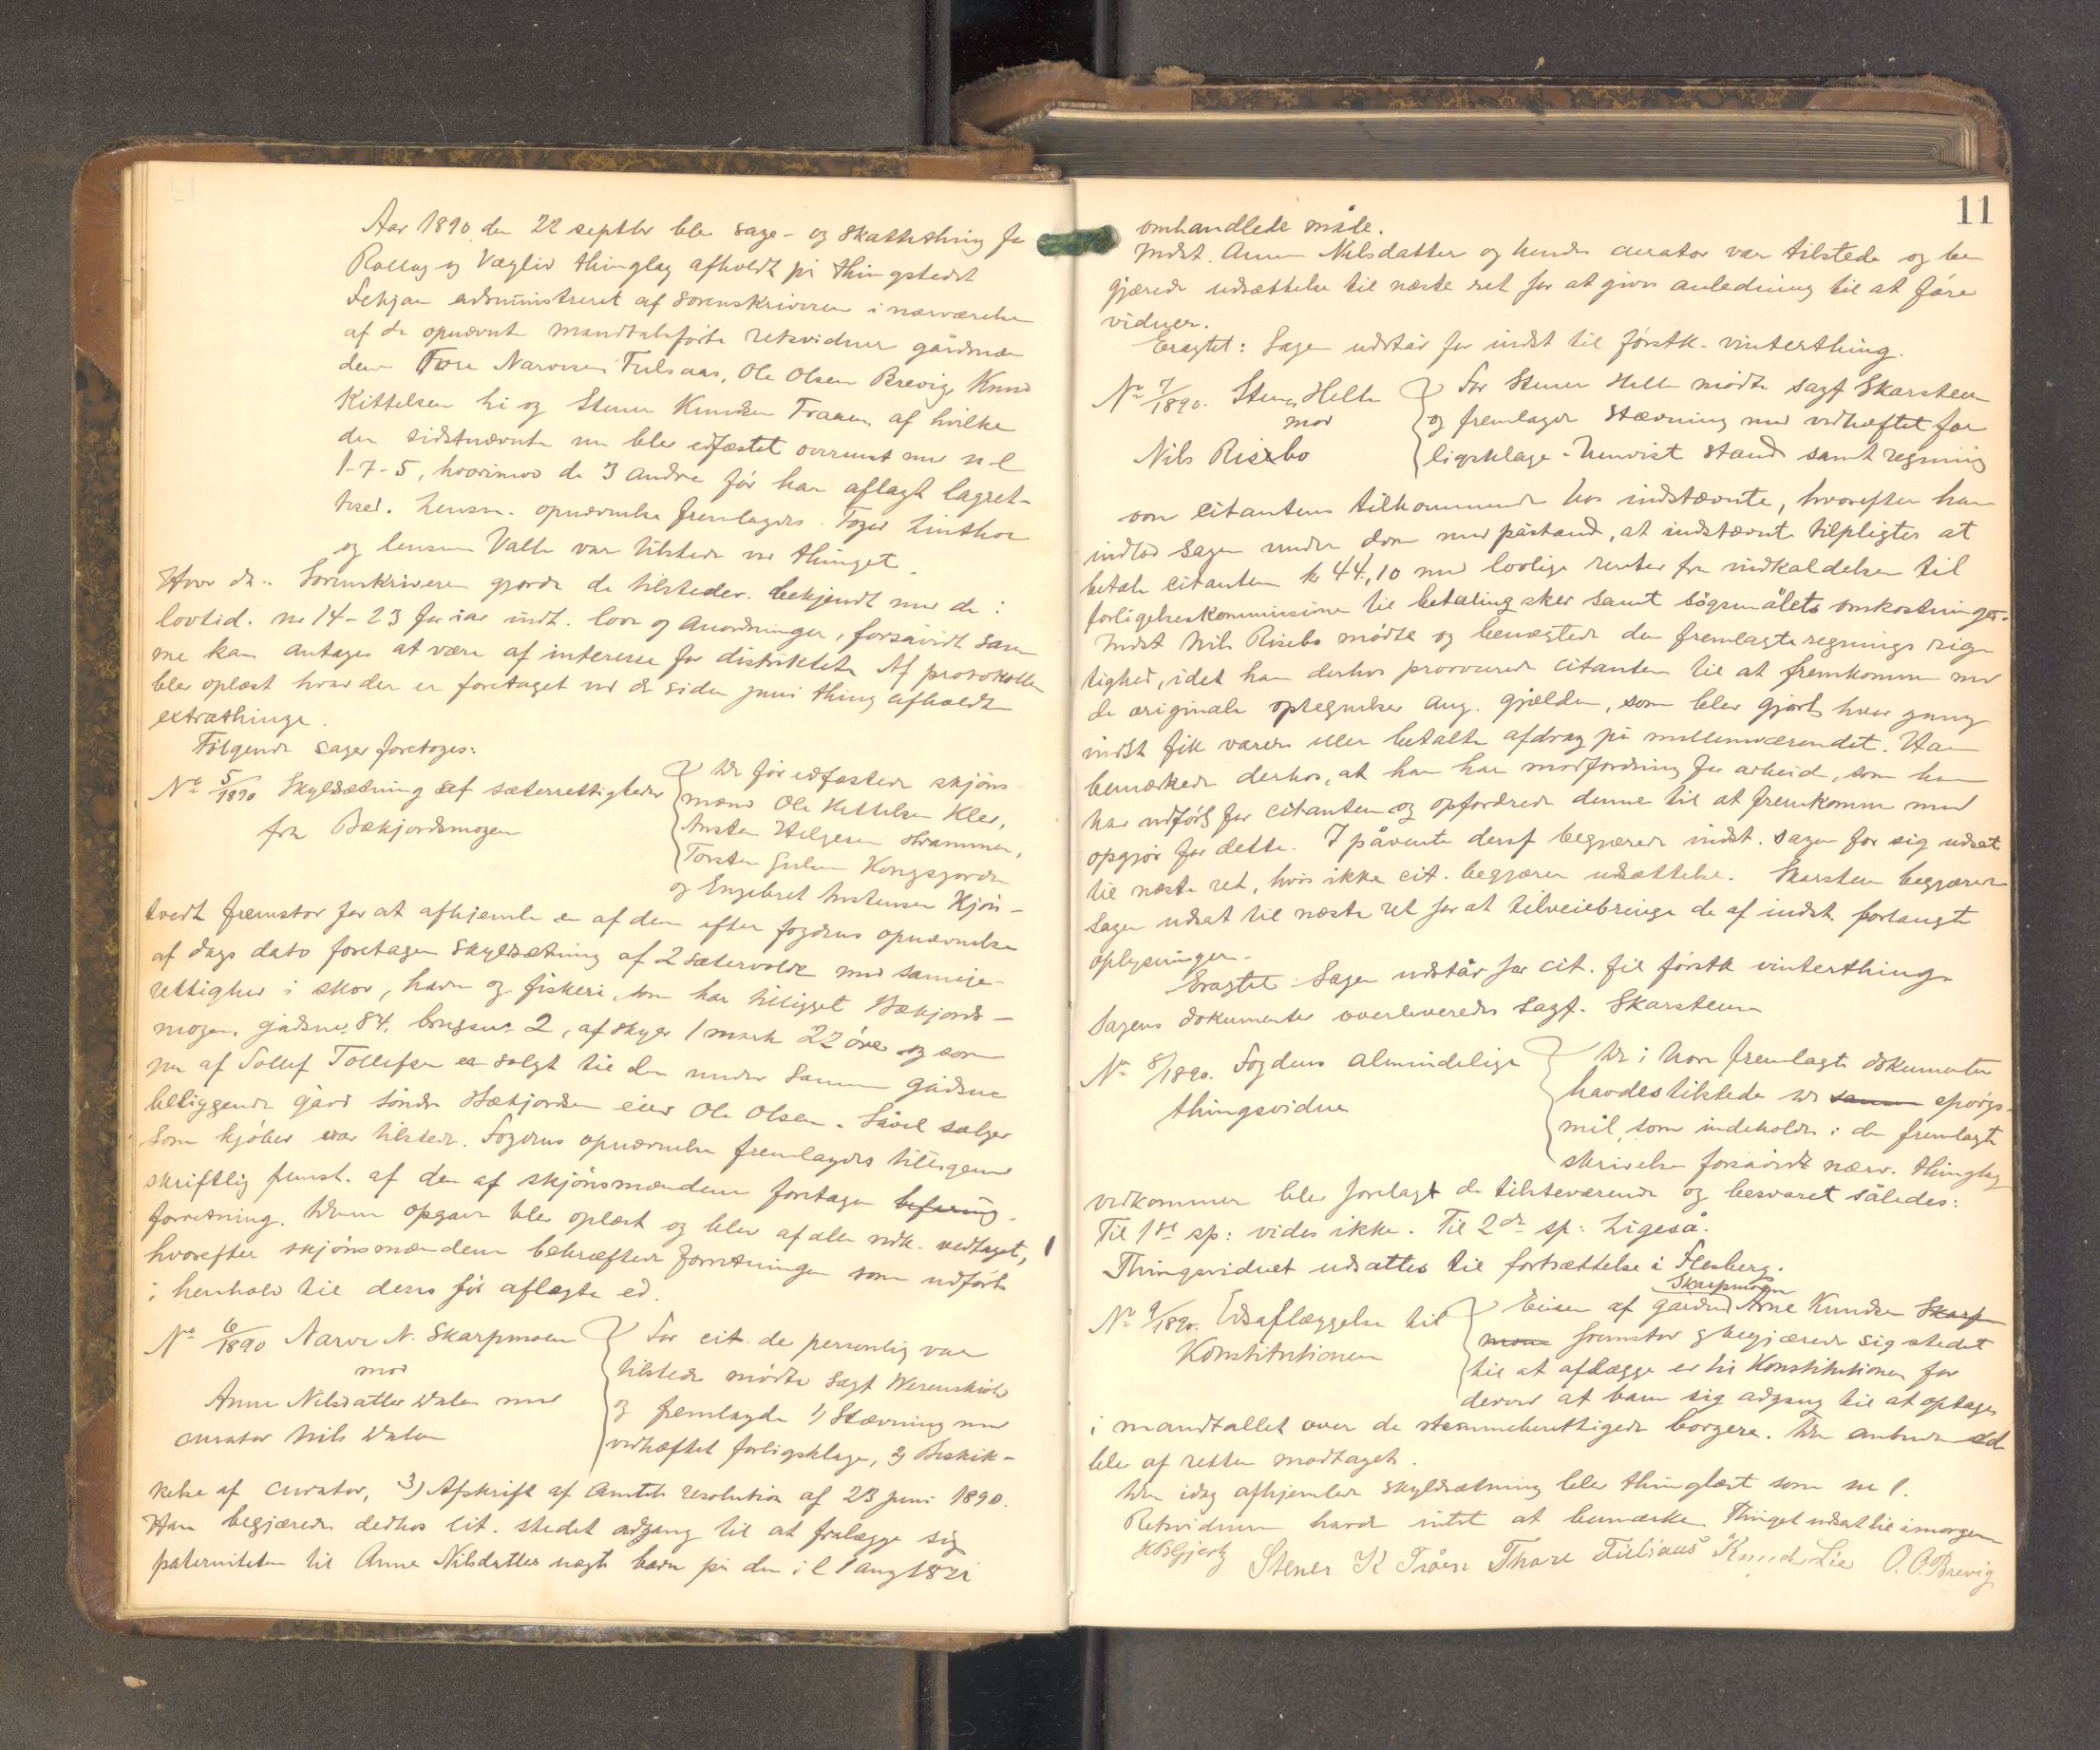 Aar 1890 den 22 septbr blev sage- og skattething for
Rollag og Væglid thinglag afholdt på thingstedet
administreret af sorenskriveren i nærværelse
af de opnævnte mandtalsførte retsvidner gårdmæn
dene Tore Narvesen Fulsaas, Ole Olsen Brevig, Knud
Kittelsen Li og Stener Knudsen Traaen, af hvilke
den sidstnævnte nu blev edfæstet overenst med n-l
1-7-5, hvorimod de 3 andre før har aflagt lagret-
tesed. Lensm. opnævnelse fremlagdes. Foged Linthoe
og lensm Valle var tilstede ved thinget.
Hvor da.. Sorenskriveren gjorde de tilstedev. bekjendt med de i
lovtid. nr 14-23 for iår indt. love og anordninger, forsåvidt sam
me kan antages at være af interesse for distriktet. Af protokollen
blev oplæst hvad der er foretaget ved de siden juni thing afholdte
extrathinge.
Følgende sager foretoges:
No 5/1890 Skyldsætning af sæterrettigheder
fra Bækjordsmogen
De før edfæstede skjøns
mænd Ole Kittelsen Klev,
Ansten Helgesen
Torsten Gulsen Kongsjorden
og Engebret Anstensen Kjøn-
tvedt fremstod for at afhjemle en af dem efter fogdens opnævnelse
af dags dato foretagen skyldsætning af 2 sætervolde med sameje-
rettighed i skov, havn og fiskeri, som har tilligget Bækjords-
mogen, gårdsnr. 84, brugsnr. 2, af skyld 1 mark 22 øre og som
nu af Tollef Tollefsen er solgt til den under samme gårdsnr
beliggende gård søndre Bækjorden eier Ole Olsen. Såvel sælger
som kjøber var tilstede. Fogdens opnævnelse fremlagdes tilligemed
skriftlig fremst. af den af skjønsmændene foretagen befaring.
forretning. Denne opgave blev oplæst og blev af alle vedk. vedtaget,
hvorefter skjønsmændene bekræftede forretningen som udført
i henhold til deres før aflagte ed.
No 6/1890 Narve N. Skarpmoen
mod
Anne Nilsdatter Dalen med
curator Nils Dalen
For cit. de personlig var
tilstede mødte sagf Werenskiold
og fremlagde 1) Stævning med
vedhæftet forligsklage, 2) Beskik-
kelse af curator, 3) Afskrift af amtets resolution af 23 juni 1890.
Han begjærede derhos cit. stedet adgang til at fralægge sig
paterniteten til Anne Nilsdatters uægte barn på den i l 1 aug
11
omhandlede måte.
Indst. Anne Nilsdatter og hendes curator var tilstede og be
gjærede udsættelse til næste ret for at gives anledning til at føre
vidner.
Eragtet: Sagen udstår for indst til førstk. vinterthing.
No 7/1890. Stener Helle
mod
Nils Risebo
For Stener Helle mødte sagf Skarsteen
og fremlagde Stævning med vedhæftet for
ligsklage-henvist stand samt regning
over citantens tilkommende hos indstævnte, hvorefter han
indlod sagen under dom med påstand, at indstævnte tilpligtes at
betale citanten kr 44,10 med lovlige renter fra indkaldelsen til
forligelseskommissionen til betaling sker samt søgsmålets omkostninger.
Indst Nils Risebo mødte og benægtede den fremlagte regnings rig
tighed, idet han derhos provocerede citanten til at fremkomme med
de originale optegnelser ang. gjælden, som blev gjort hver gang
indst fik varer eller betalte afdrag på mellemværendet. Han
bemærkede derhos, at han har modfordring for arbeid, som han
har udført for citanten og opfordrede denne til at fremkomme med
opgjør for dette. I påvente deraf begjærede indst. sagen for sig udsat
til næste ret, hvis ikke cit. begjærer udsættelse. Skarsteen begjærede
sagen udsat til næste ret for at tilveiebringe de af indst. forlangte
oplysninger.
Eragtet: Sagen udstår for cit. til førstk vinterthing.
Sagens dokumenter overleveredes sagf. Skarsteen
No 8/1890. Fogdens almindelige
thingsvidne
De i hove fremlagte dokumenter
havdes tilstede De samme spørgs-
mål, som indeholdes i den fremlagte
skrivelse forsåvidt nærv. thinglag
vedkommer blev forelagt de tilstedeværende og besvaret således:
Til 1ste sp: vides ikke. Til 2de sp: Ligeså.
Thingsvidnet udsattes til fortsættelse i Flesberg.
No 9/1890. Edsaflæggelse til
Konstitutionen
Eieren af gården Skarpmoen Arne Knudsen Skarp
moen fremstod og begjærede sig stedet
til at aflægge ed til Konstitutionen for
derved at bane sig adgang til at optages
i mandtallet over de stemmeberettigede borgere. Den anbudne ed
blev af retten modtaget.
Den idag afhjemlede skyldsætning blev thinglæst som nr 1.
Retsvidnerne havde intet at bemærke. Thinget udsat til imorgen
HB Gjertz Stener K Tråen Thore Fulsaas Knud Lie O. O. Brevig